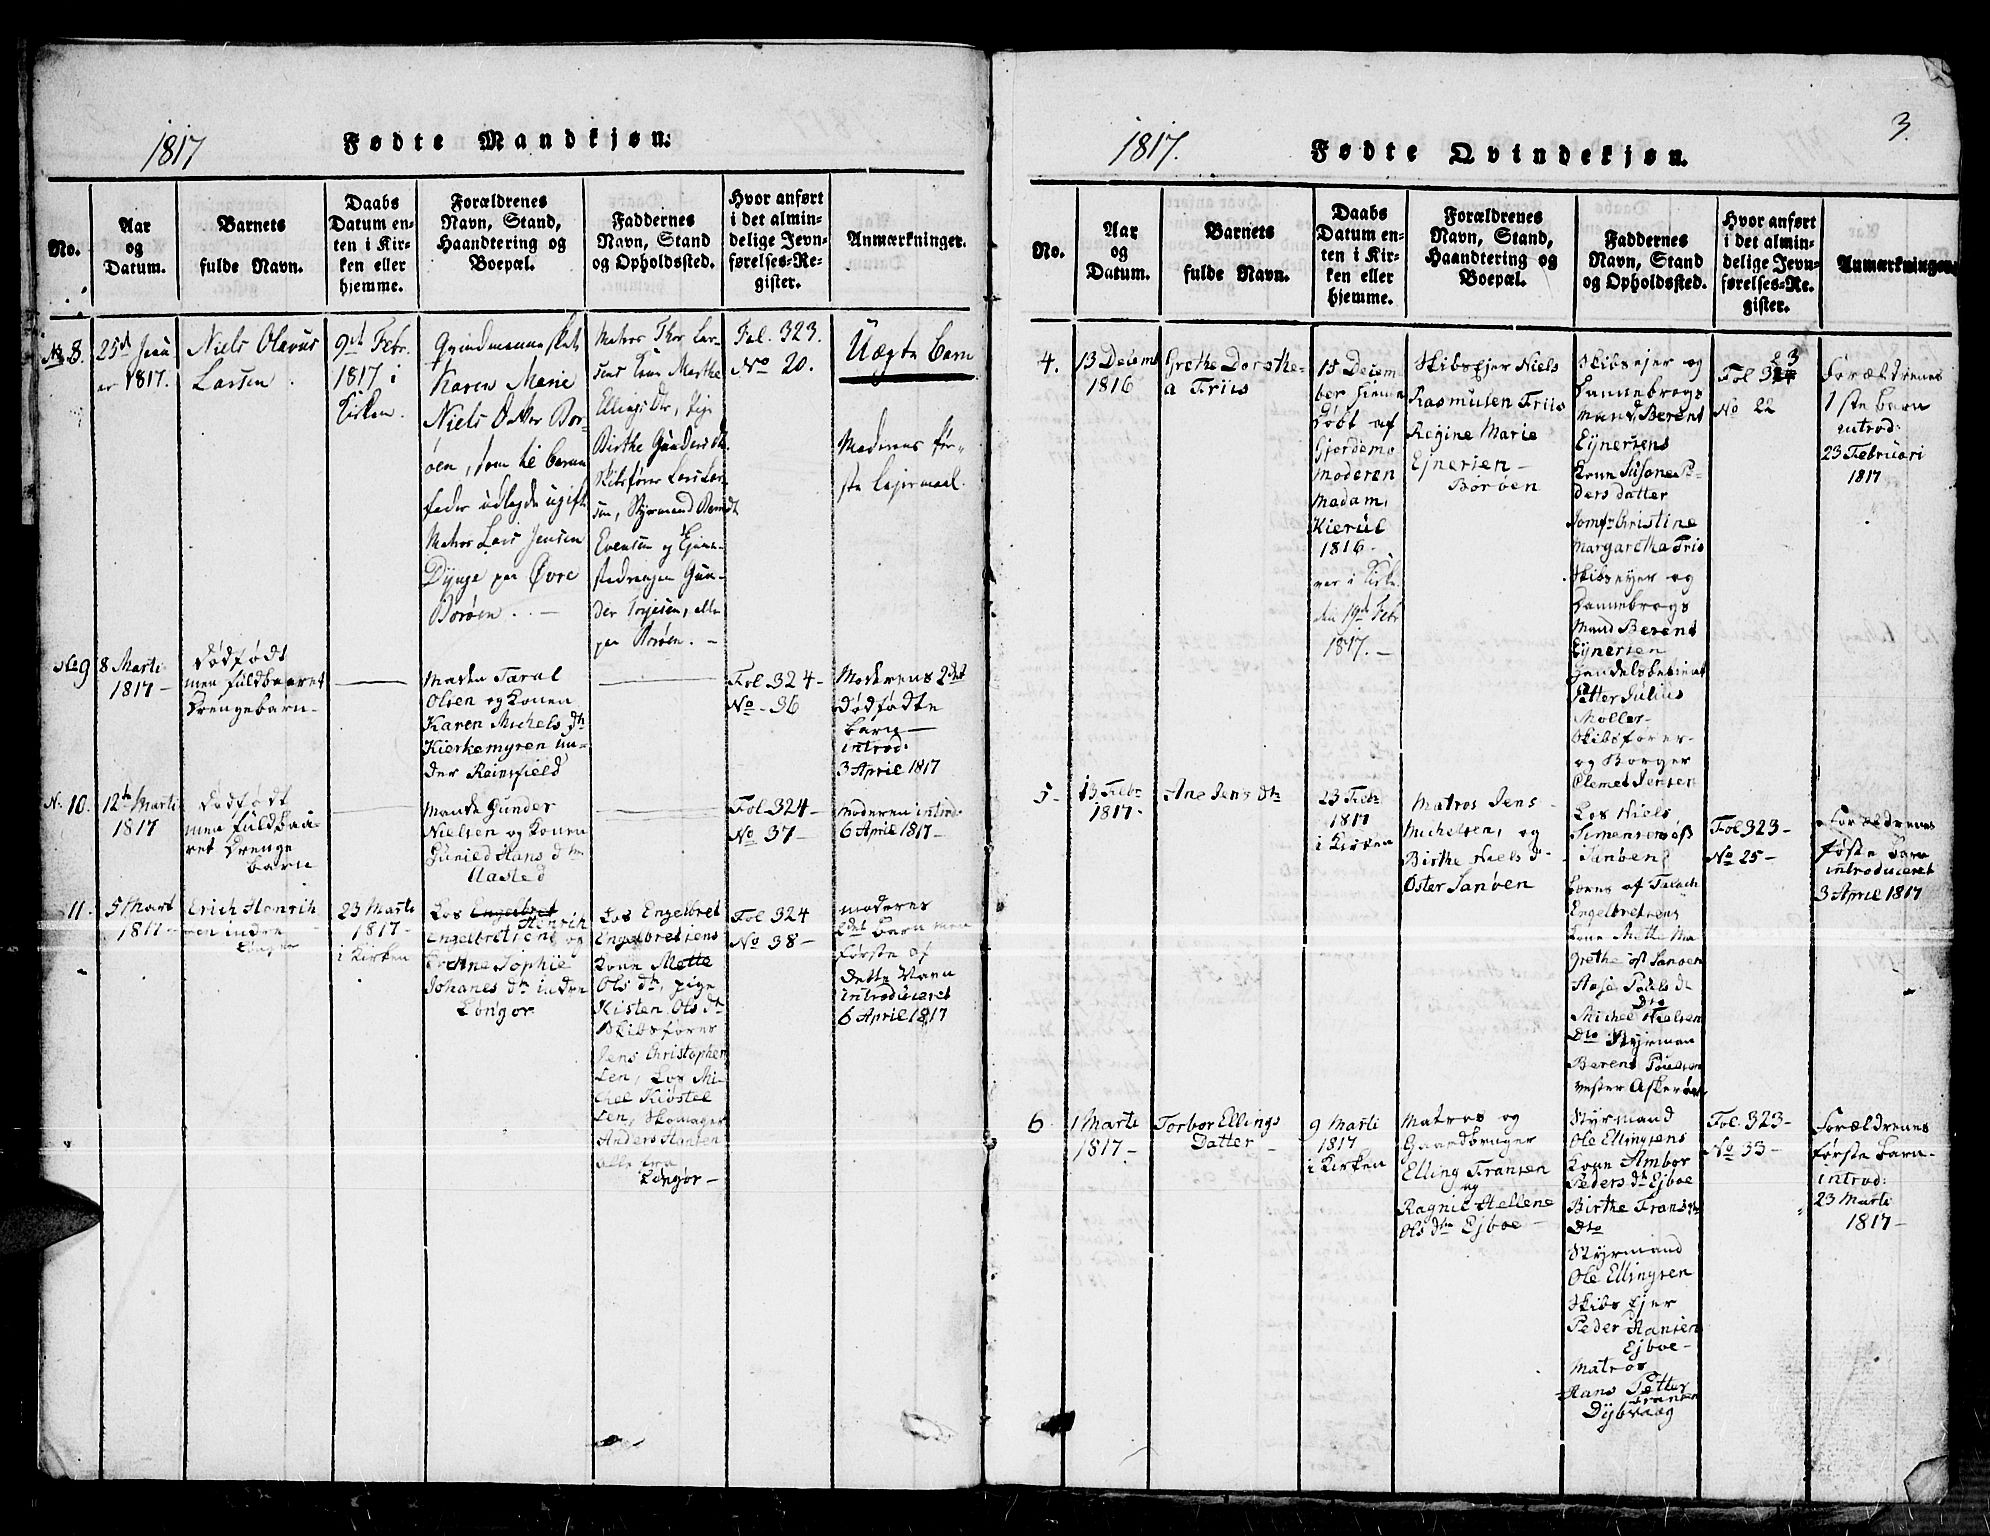 1817
Fødte Mandkjøn.
No.
Aar
og
Datum.
Barnets
fulde Navn.
Daabs
Datum en-
ten i Kir-
ken eller
hjemme.
Forældrenes
Navn, Stand,
Haandtering og
Boepæl.
Faddernes
Navn, Stand
og Opholdssted.
Hvor anført
i det almin-
delige Jevn-
førelses-Re-
gister.
Anmærkninger.
8.
25d
1817.
Niels Olavus
Larsen
9d Febr.
1817 i
Kirken.
Karen Marie
Niels
Bor-
øen, som til barne
fader udlagde ugift
Matros Lars Jensen
Dynge paa Øvre
Borøen.
Matros Thor Lar-
sens Kone Marthe
Ellings Dr, Pige
Birthe Gunders dr
Skibsfører Lars Lar-
sen, Styrmand Berndt
Evensen og
Gun-
der Torjesen, alle
paa Borøen. -
Fol. 323.
No 20.
Uægte Barn
Moderens før-
ste Lejermaal.
No 9
8 Marti
1817 -
Dødfødt
men fuldbaaret
Drengebarn -
Taral
Olsen og Konen
Karen Michels dtr
Kierkemyren un-
der Reinsfield
Fol 324 -
No - 36
Moderens 2det
dødfødte
barn -
introd:
3 April 1817
N. 10.
12te Marti
1817
Dødfødt
men fuldbaa-
ret Drenge
barn
Gunder
Nielsen og Konen
Gunild Hans dtr
Hasted
Fol 324 -
No 37 -
Moderen introd:
6 April 1817 -
11.
5 Mart
1817 -
Erich Henrich
sen indre
Longør
23 Marti
1817 -
i Kirken
Los Engelbret
Henrich
Engelbretsen og
Ane Sophie
Johanes dtr indre
Longør
Los Engelbret
Engelbretsens
Kone Mette
Ols dtr, pige
Kisten Ols dtr
Skibsfører
Jens Christopher
sen, Los Mi-
chel Kiøstel
sen, Skomager
Anders Hansen
alle fra
Longør -
Fol 324
No 38 -
moderens
barn men
første af
dette Navn
introduceret
6 April 1817
3.
1817.
Fødte Qvindekjøn.
No.
Aar
og
Datum.
Barnets
fulde Navn.
Daabs
Datum en-
ten i Kir-
ken eller
hjemme.
Forældrenes
Navn, Stand,
Haandtering og
Boepæl.
Faddernes
Navn, Stand
og Opholdssted.
Hvor anført
i det almin-
delige Jevn-
førelses-Re-
gister.
Anmærkninger.
4.
13 Decemb
1816
Grethe Dorthe-
a Friis
15 Decem
ber hiemme
døbt af
Gjordemo
moderen
Madam,
Kierul
1816 -
var i Kirke
den 19d Febr
1817. -
Skibs Ejer Niels
Rasmusen Friis
Regine Marie
Ejnersen -
Borøen
Skibsejer og
Dannebrogs
mand Berent
Ejnersens
Kone Susane Pe-
ders datter
Jomfr Christine
Margaretha Friis
Skibsejer og
Dannebrogs
Mand Berent
Ejnersen
Petter Julius
Møller -
Skibsfører -
og Borger
Clemet Jensen
Fol 323
No 22
Forældrenes
1ste barn
introd:
23 Februari
1817
5 -
13 Febr
1817 -
Ane Jens dtr
23 Febr
1817
i Kirken
Matros Jens
Michelsen, og
Birthe Niels d -
Øster Sanøen
Los Niels
Simensens af
Sanøen
Engelbretsens
Kone Mette Ma
grethe af Sanøen
Aase Pouls d
Dto
Michel Nielsen
Dto Styrman
Berent Poulsen
vester Askerøen
Fol 323 -
No 25 -
Forældrenes
første Barn
introduceret
3 April 1817
6
1 Marti
1817 -
Torbor Ellings
Datter
9 Marti
1817
i Kirken
Matros og
Gaardbruger
Elling Fransen
og
Ragnil Hellene
Ols dtr Ejboe -
Styrmand
Ole Ellingsens
Kone Ambor
Peders dtr Ejboe
Birthe Frans dtr
Dto
Styrmand
Ole Ellingsen
Skibs Ejer
Peder Hansen
Ejboe -
Matros
Hans Petter
Fransen
Dybvaag
Fol. 323 -
No 33 -
Forældrenes
første barn -
introd:
23 Marti
1817 -